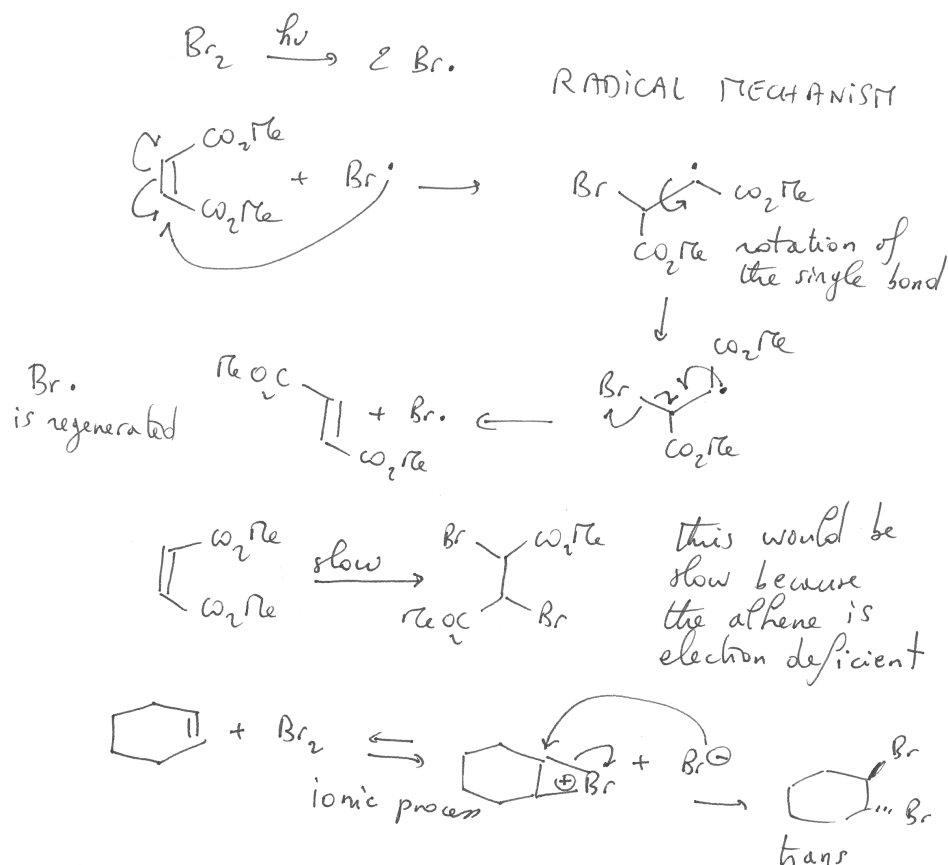 Br2 hν 2 Br.
RADICAL MECHANISM
CO2Me
CO2Me
+ Br.
Br CO2Me
CO2Me
rotation of
the single bond
CO2Me
Br
CO2Me
MeO2C
CO2Me
+ Br.
Br.
is regenerated
CO2Me
CO2Me
slow
Br CO2Me
MeO2C Br
this would be
slow because
the alkene is
electron deficient
+ Br2
ionic process
⊕ Br + Br⊖
Br
Br
trans